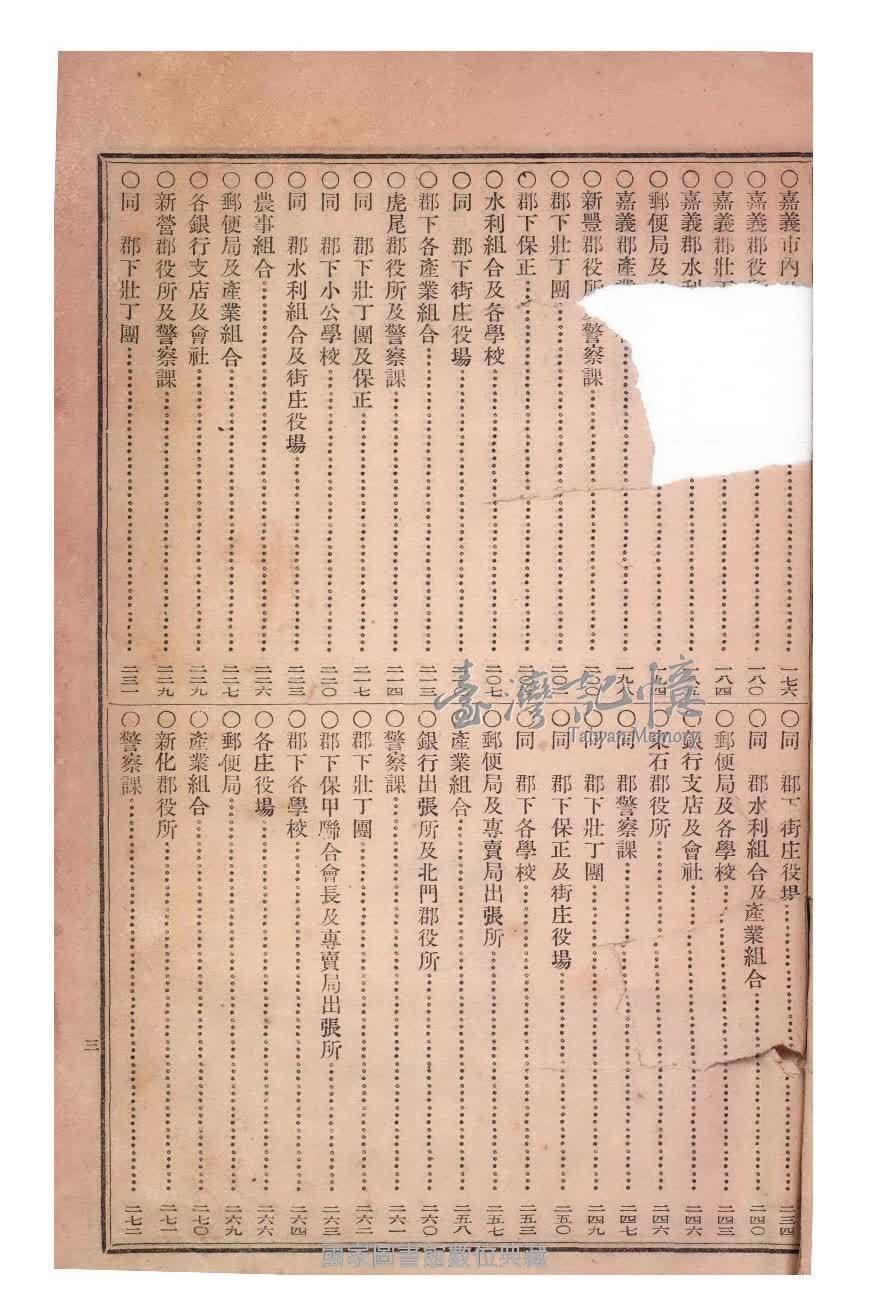 ○嘉義市內
○嘉義郡役
○嘉義郡壯丁
○嘉義郡水利
○郵便局及
○嘉義郡產
○新豐郡役所 警察課
○郡下壯丁團
○郡下保正
○水利組合及各學校 二〇七
○同 郡下街庄役場
○郡下各產業組合 二一三
○虎尾郡役所及警察課 二一四
○同 郡下壯丁團及保正 二一七
○同 郡下小公學校 二二〇
○同 郡水利組合及街庄役場 二二三
○農事組合 二二六
○郵便局及產業組合 二二七
○各銀行支店及會社 二二九
○新營郡役所及警察課 二二九
○同 郡下壯丁團 二三一
一七六
一八〇
一八四
一九八
○同 郡下街庄役場 二三四
○同 郡水利組合及產業組合 二四〇
○郵便局及各學校 二四三
○銀行支店及會社 二四六
○東石郡役所 二四六
○同 郡警察課 二四七
○同 郡下壯丁團 二四九
○同 郡下保正及街庄役場 二五〇
○同 郡下各學校 二五三
○郵便局及專賣局出張所 二五七
○產業組合 二五八
○銀行出張所及北門郡役所 二六〇
○警察課 二六一
○郡下壯丁團 二六二
○郡下保甲聯合會長及專賣局出張所 二六三
○郡下各學校 二六四
○各庄役場 二六六
○郵便局 二六九
○產業組合 二七〇
○新化郡役所 二七一
○警察課 二七二
三
臺灣記憶
Taiwan Memory
國家圖書館數位典藏